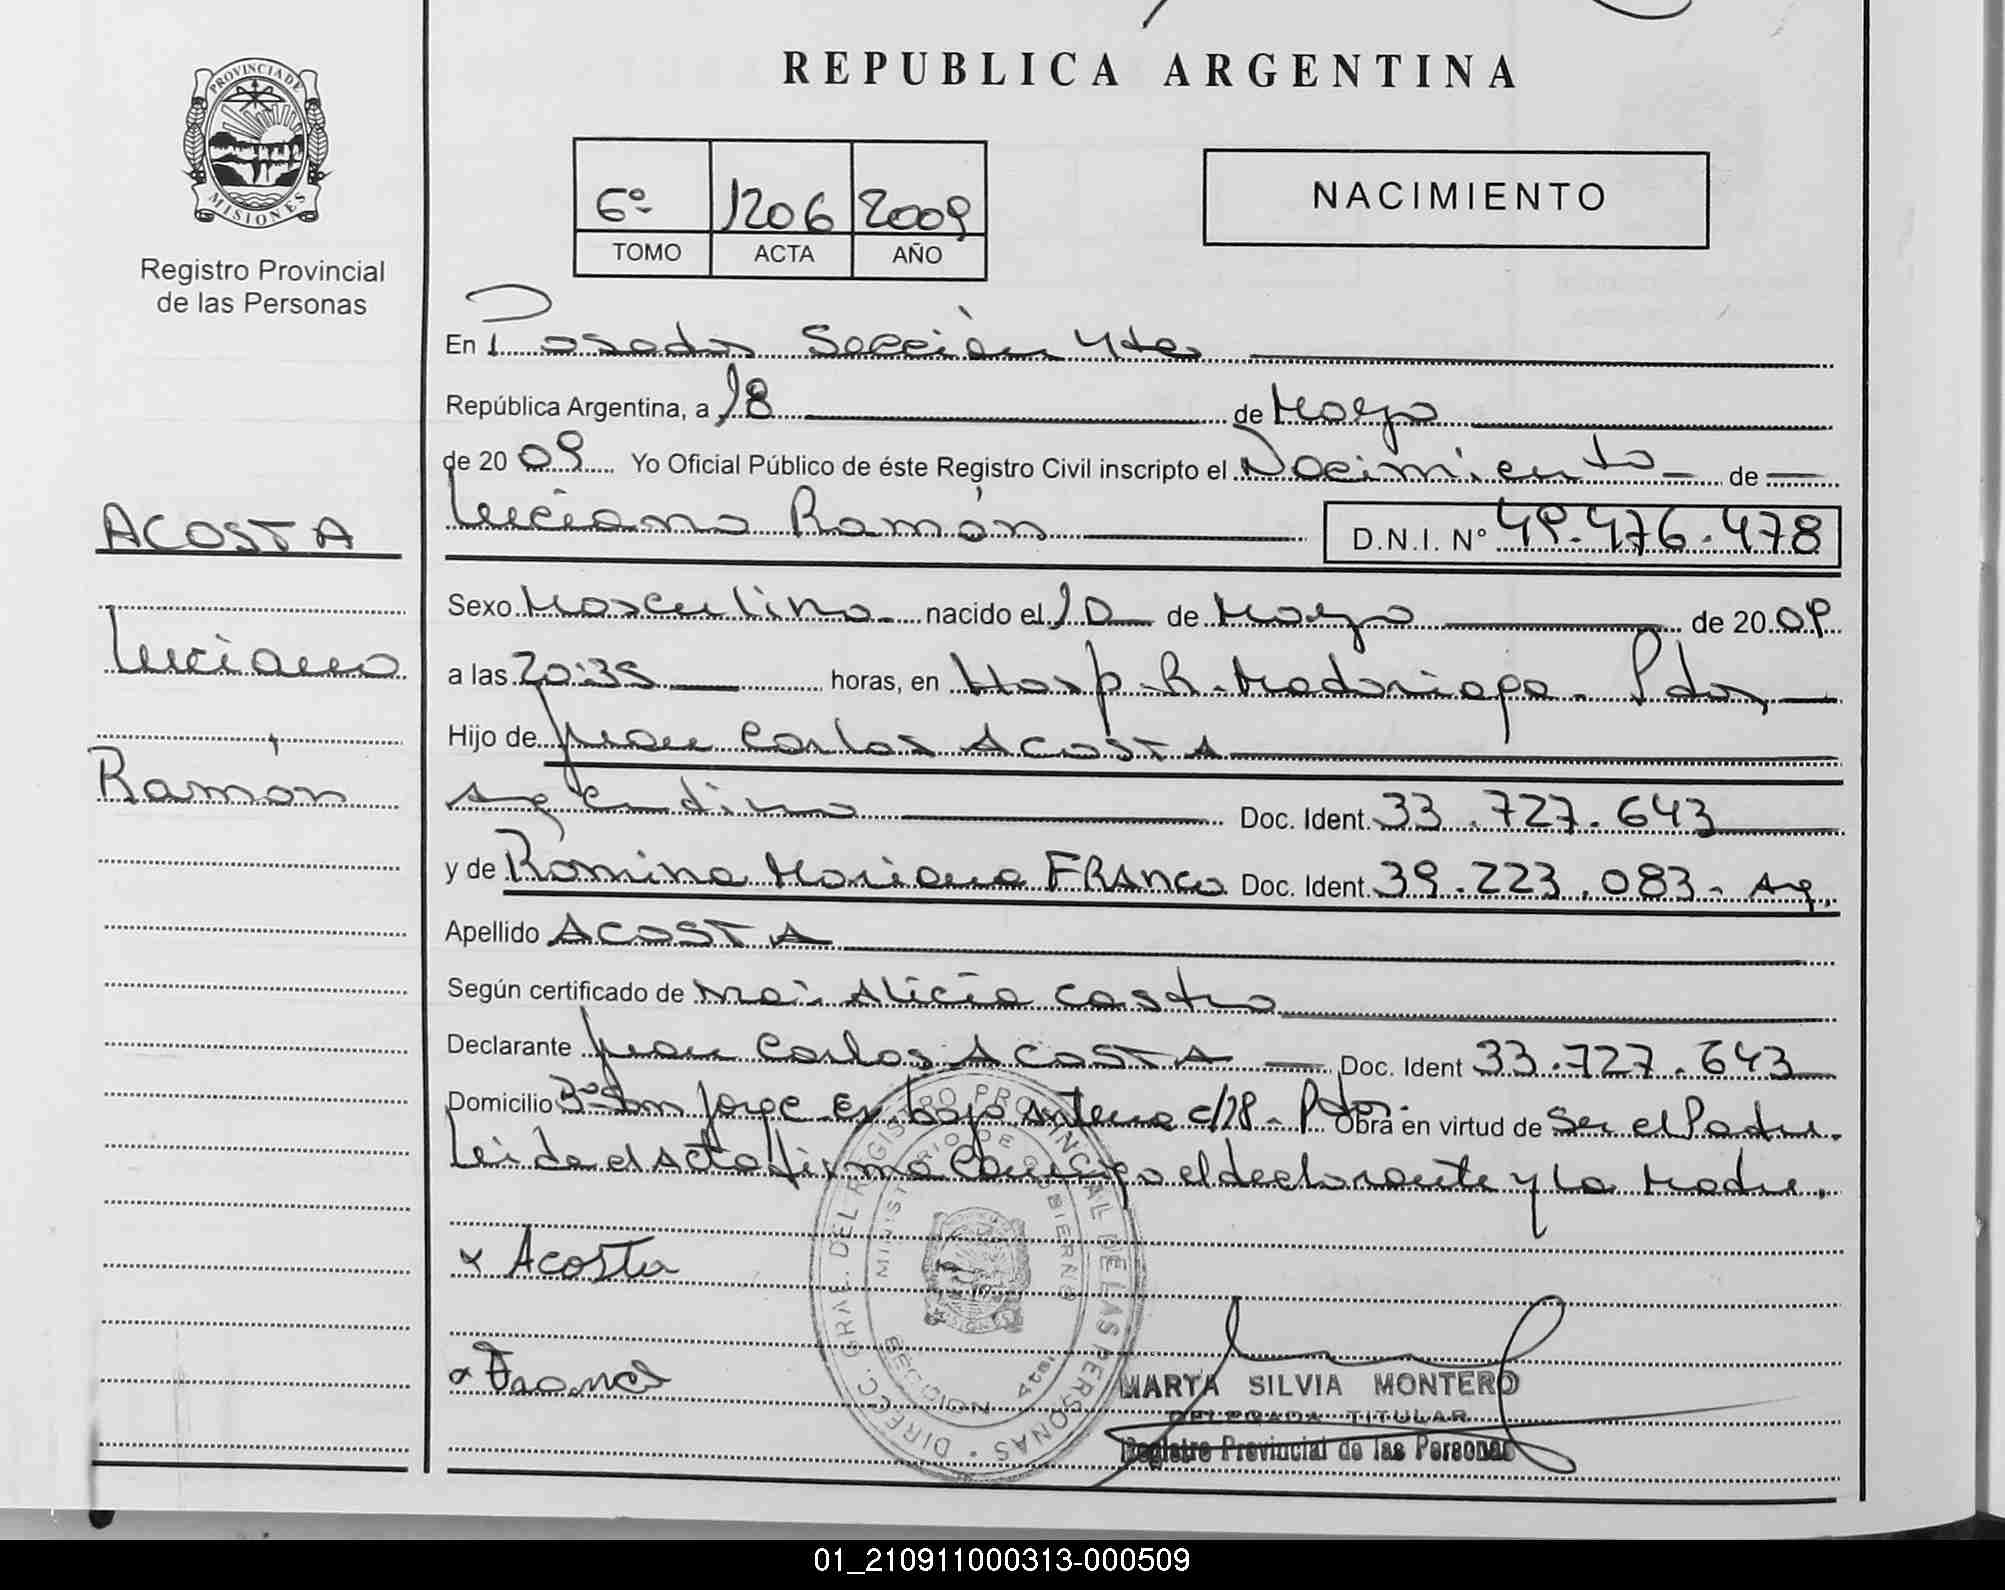 PROVINCIA DE
MISIONES
Registro Provincial
de las Personas
ACOSTA
Luciano
Ramón
REPUBLICA ARGENTINA
6º 1206 2009
TOMO ACTA AÑO
NACIMIENTO
En Posadas Sección 4ta
República Argentina, a 18 de Mayo
de 20 09 Yo Oficial Público de éste Registro Civil inscripto el Nacimiento de
Luciano Ramón D.N.I. Nº 49.476.478
Sexo Masculino nacido el 10 de Mayo de 20 09
a las 20:35 horas, en Hosp. R. Madariaga. Pdas,
Hijo de Juan Carlos ACOSTA
Argentino Doc. Ident. 33.727.643
y de Romina Mariana FRANCO Doc. Ident. 39.223.083 - Arg.
Apellido ACOSTA
Según certificado de Alicia Castro
Declarante Juan Carlos ACOSTA Doc. Ident 33.727.643
Domicilio Bº San Jorge Ex bajo antena c/28 - Pdas. Obra en virtud de Ser el Padre.
Leida el Acta firma Conmigo el declarante y la Madre.
x Acosta
x Franco
DIRECC. GRAL. DEL REGISTRO PROVINCIAL DE LAS PERSONAS
MINISTERIO DE GOBIERNO
SECCION 4ta
MARTA SILVIA MONTERO
DELEGADA TITULAR
Registro Provincial de las Personas
01_210911000313-000509